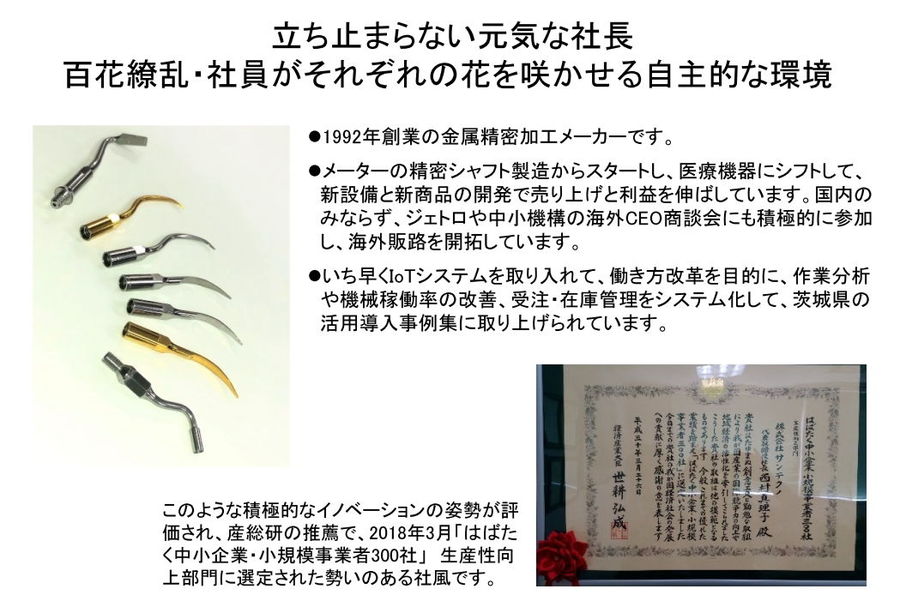 立ち止まらない元気な社長
百花繚乱・社員がそれぞれの花を咲かせる自主的な環境
●1992年創業の金属精密加工メーカーです。
●メーターの精密シャフト製造からスタートし、医療機器にシフトして、
新設備と新商品の開発で売り上げと利益を伸ばしています。国内の
みならず、ジェトロや中小機構の海外CEO商談会にも積極的に参加
し、海外販路を開拓しています。
●いち早くIoTシステムを取り入れて、働き方改革を目的に、作業分析
や機械稼働率の改善、受注・在庫管理をシステム化して、茨城県の
活用導入事例集に取り上げられています。
はばたく中小企業・小規模事業者300社
株式会社サンテクノ
代表取締役社長 西村真理子 殿
平成三十年三月二十六日
経済産業大臣 世耕弘成
このような積極的なイノベーションの姿勢が評
価され、産総研の推薦で、2018年3月「はばた
く中小企業・小規模事業者300社」 生産性向
上部門に選定された勢いのある社風です。